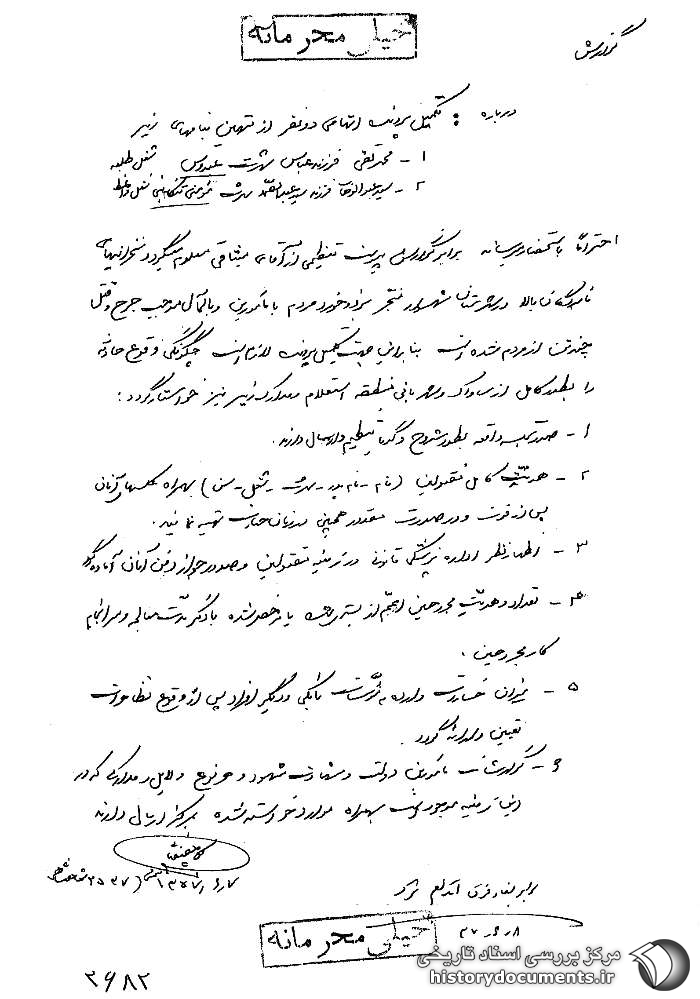 خیلی محرمانه
گزارش
درباره : تکمیل پرونده اتهامی دو نفر از متهمین بنامهای زیر
۱ - محمدتقی فرزند عباس شهرت عبدوس شغل طلعه
۲ - سید عبدالوهاب فرزند سید شهرت شغل واعظ
احتراماً باستحضار میرساند برابر گزارش پرونده تنظیمی از آقای میثاقی معلوم میگردد سخرانیهای
نامبردگان بالا در شهرستان شهسوار منتجر بزد و خورد مردم با مأمورین و بالمآل موجب جرح و قتل
چند تن از مردم شده است بنابراین جهت تکمیل پرونده لازم است چگونگی وقوع حادثه
را بطور کامل از ساواک و شهربانی منطقه استعلام و مدارک زیر نیز خواستار گردد :
۱ - صورتجلسه واقعه بطور مشروح و گویا تنظیم و ارسال دارند .
۲ - هویت کامل مقتولین (نام - نام پدر - شهرت - شغل - سن) بهمراه عکسهای آنان
پس از فوت و در صورت مقدور همچنین در زمان حیات تهیه نمایند .
۳ - اظهار نظر اداره پزشکی قانونی در زمینه مقتولین و صدور جواز دفن آنان آماده گردد
۴ - تعداد و هویت مجروحین اعم از بستری شده یا مرخص شده با ذکر مدت معالجه و سرانجام
کار مجروحین .
۵ - میزان خسارت وارده به مؤسسات بانکی و دیگر افراد پس از وقوع تظاهرات
تعیین و ارائه گردد .
۶ - گزارشات مأمورین دولت و شهادت شهود و هر نوع دلایل و مدارکی که در
این زمینه موجود است بهمراه موارد خواسته شده بمرکز ارسال دارند
برابر بند فوق اقدام شود
۳۷،۶،۸
خیلی محرمانه
۳۶۸۲
مرکز بررسی اسناد تاریخی
historydocuments.ir